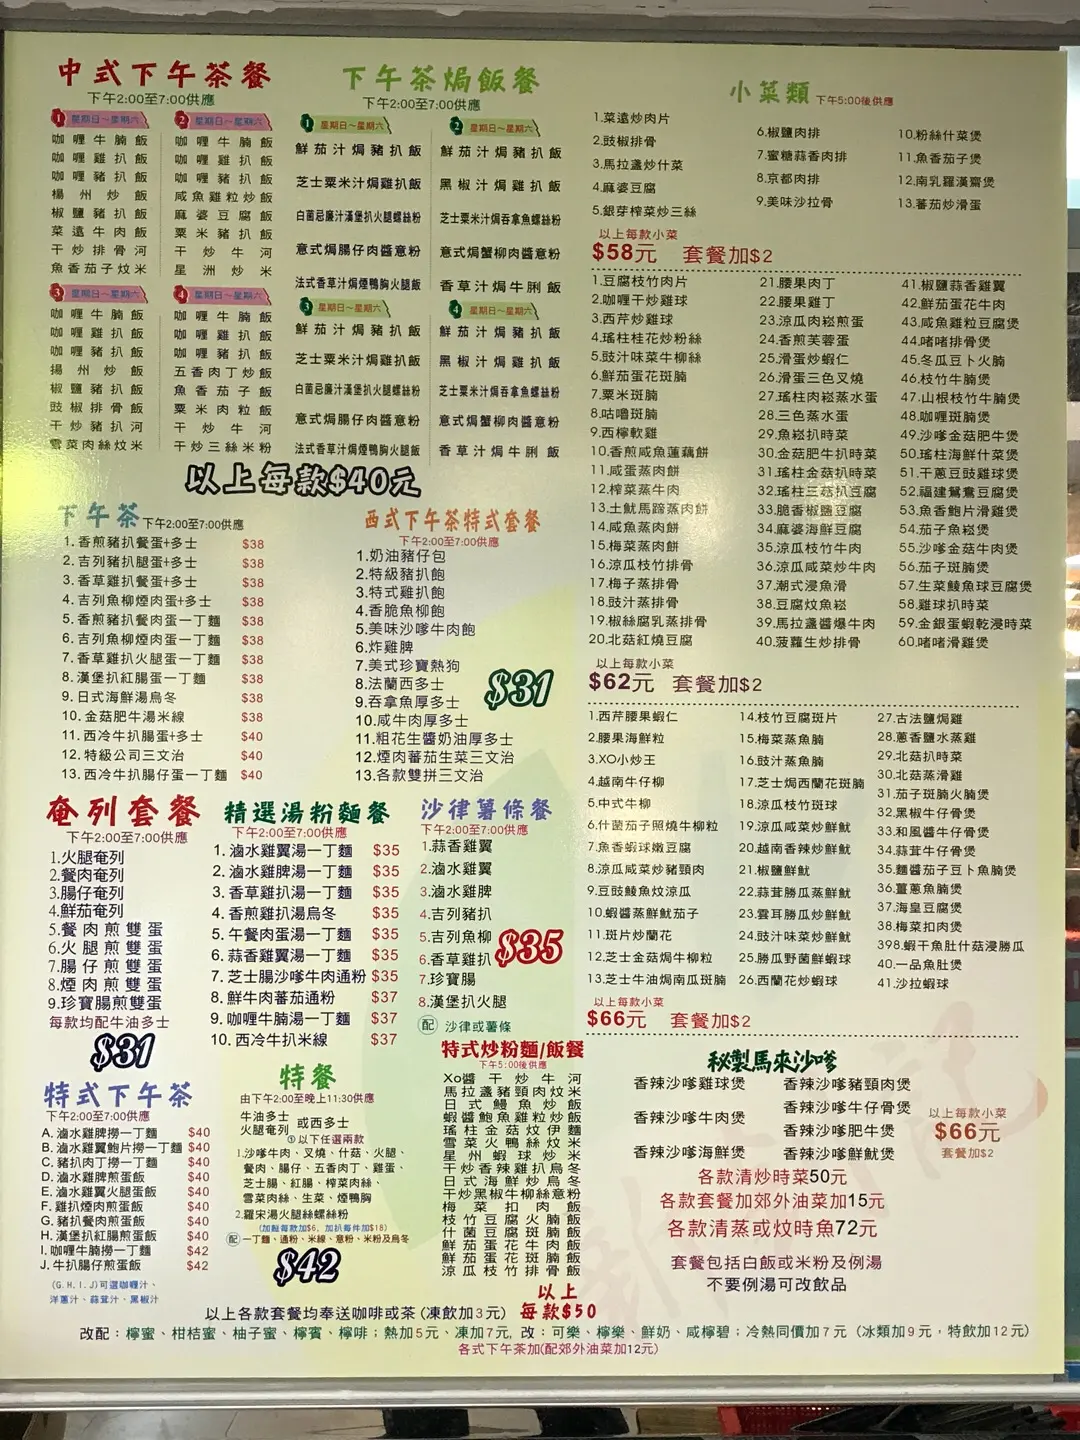 中式下午茶餐
下午2:00至7:00供應
1 星期日～星期六
咖喱牛腩飯
咖喱雞扒飯
咖喱豬扒飯
楊州炒飯
椒鹽豬扒飯
菜遠牛肉飯
干炒排骨河
魚香茄子炆米
2 星期日～星期六
咖喱牛腩飯
咖喱雞扒飯
咖喱豬扒飯
咸魚雞粒炒飯
麻婆豆腐飯
粟米豬扒飯
干炒牛河
星洲炒米
3 星期日～星期六
咖喱牛腩飯
咖喱雞扒飯
咖喱豬扒飯
揚州炒飯
椒鹽豬扒飯
豉椒排骨飯
干炒豬扒河
雪菜肉絲炆米
4 星期日～星期六
咖喱牛腩飯
咖喱雞扒飯
咖喱豬扒飯
五香肉丁炒飯
魚香茄子飯
粟米肉粒飯
干炒牛河
干炒三絲米粉
下午茶焗飯餐
下午2:00至7:00供應
1 星期日～星期六
鮮茄汁焗豬扒飯
芝士粟米汁焗雞扒飯
白菌忌廉汁漢堡扒火腿螺絲粉
意式焗腸仔肉醬意粉
法式香草汁焗煙鴨胸火腿飯
2 星期日～星期六
鮮茄汁焗豬扒飯
黑椒汁焗雞扒飯
芝士粟米汁焗吞拿魚螺絲粉
意式焗蟹柳肉醬意粉
香草汁焗牛脷飯
3 星期日～星期六
鮮茄汁焗豬扒飯
芝士粟米汁焗雞扒飯
白菌忌廉汁漢堡扒火腿螺絲粉
意式焗腸仔肉醬意粉
法式香草汁焗煙鴨胸火腿飯
4 星期日～星期六
鮮茄汁焗豬扒飯
黑椒汁焗雞扒飯
芝士粟米汁焗吞拿魚螺絲粉
意式焗蟹柳肉醬意粉
香草汁焗牛脷飯
以上每款$40元
下午茶 下午2:00至7:00供應
1. 香煎豬扒餐蛋+多士 $38
2. 吉列豬扒腿蛋+多士 $38
3. 香草雞扒餐蛋+多士 $38
4. 吉列魚柳煙肉蛋+多士 $38
5. 香煎豬扒餐肉蛋一丁麵 $38
6. 吉列魚柳煙肉蛋一丁麵 $38
7. 香草雞扒火腿蛋一丁麵 $38
8. 漢堡扒紅腸蛋一丁麵 $38
9. 日式海鮮湯烏冬 $38
10. 金菇肥牛湯米線 $38
11. 西冷牛扒腸蛋+多士 $40
12. 特級公司三文治 $40
13. 西冷牛扒腸仔蛋一丁麵 $40
西式下午茶特式套餐
下午2:00至7:00供應
1.奶油豬仔包
2.特級豬扒飽
3.特式雞扒飽
4.香脆魚柳飽
5.美味沙嗲牛肉飽
6.炸雞脾
7.美式珍寶熱狗
8.法蘭西多士
9.吞拿魚厚多士
10.咸牛肉厚多士
11.粗花生醬奶油厚多士
12.煙肉蕃茄生菜三文治
13.各款雙拼三文治
$31
奄列套餐
下午2:00至7:00供應
1.火腿奄列
2.餐肉奄列
3.腸仔奄列
4.鮮茄奄列
5.餐肉煎雙蛋
6.火腿煎雙蛋
7.腸仔煎雙蛋
8.煙肉煎雙蛋
9.珍寶腸煎雙蛋
每款均配牛油多士
$31
精選湯粉麵餐
下午2:00至7:00供應
1. 滷水雞翼湯一丁麵 $35
2. 滷水雞脾湯一丁麵 $35
3. 香草雞扒湯一丁麵 $35
4. 香煎雞扒湯烏冬 $35
5. 午餐肉蛋湯一丁麵 $35
6. 蒜香雞翼湯一丁麵 $35
7. 芝士腸沙嗲牛肉通粉 $35
8. 鮮牛肉蕃茄通粉 $37
9. 咖喱牛腩湯一丁麵 $37
10. 西冷牛扒米線 $37
沙律薯條餐
下午2:00至7:00供應
1.蒜香雞翼
2.滷水雞翼
3.滷水雞脾
4.吉列豬扒
5.吉列魚柳
6.香草雞扒
7.珍寶腸
8.漢堡扒火腿
配 沙律或薯條
$35
特式下午茶
下午2:00至7:00供應
A. 滷水雞脾撈一丁麵 $40
B. 滷水雞翼鮑片撈一丁麵 $40
C. 豬扒肉丁撈一丁麵 $40
D. 滷水雞脾煎蛋飯 $40
E. 滷水雞翼火腿蛋飯 $40
F. 雞扒煙肉煎蛋飯 $40
G. 豬扒餐肉煎蛋飯 $40
H. 漢堡扒紅腸煎蛋飯 $40
I. 咖喱牛腩撈一丁麵 $42
J. 牛扒腸仔煎蛋飯 $42
(G.H.I.J)可選咖喱汁、
洋蔥汁、蒜茸汁、黑椒汁
特餐
由下午2:00至晚上11:30供應
牛油多士
火腿奄列 或西多士
①以下任選兩款
1.沙嗲牛肉、叉燒、什菇、火腿、
餐肉、腸仔、五香肉丁、雞蛋、
芝士腸、紅腸、榨菜肉絲、
雪菜肉絲、生菜、煙鴨胸
2.羅宋湯火腿螺絲粉
(加餸每款加$6、加扒每件加$18)
配 一丁麵、通粉、米線、意粉、米粉及烏冬
$42
特式炒粉麵/飯餐
下午5:00後供應
Xo醬干炒牛河
馬拉盞豬頸肉炆米
日式鰻魚炒飯
蝦醬鮑魚雞粒炒飯
瑤柱金菇炆伊麵
雪菜火鴨絲炆米
星州蝦球炒米
干炒香辣雞扒烏冬
日式海鮮炒烏冬
干炒黑椒牛柳絲意粉
梅菜扣肉飯
枝竹豆腐火腩飯
什菌豆腐斑腩飯
鮮茄蛋花牛肉飯
鮮茄蛋花斑腩飯
涼瓜枝竹排骨飯
以上
每款$50
小菜類 下午5:00後供應
1.菜遠炒肉片
2.豉椒排骨
3.馬拉盞炒什菜
4.麻婆豆腐
5.銀芽榨菜炒三絲
6.椒鹽肉排
7.蜜糖蒜香肉排
8.京都肉排
9.美味沙拉骨
10.粉絲什菜煲
11.魚香茄子煲
12.南乳羅漢齋煲
13.蕃茄炒滑蛋
以上每款小菜
$58元 套餐加$2
1.豆腐枝竹肉片
2.咖喱干炒雞球
3.西芹炒雞球
4.瑤柱桂花炒粉絲
5.豉汁味菜牛柳絲
6.鮮茄蛋花斑腩
7.粟米斑腩
8.咕嚕斑腩
9.西檸軟雞
10.香煎咸魚蓮藕餅
11.咸蛋蒸肉餅
12.榨菜蒸牛肉
13.土魷馬蹄蒸肉餅
14.咸魚蒸肉餅
15.梅菜蒸肉餅
16.涼瓜枝竹排骨
17.梅子蒸排骨
18.豉汁蒸排骨
19.椒絲腐乳蒸排骨
20.北菇紅燒豆腐
21.腰果肉丁
22.腰果雞丁
23.涼瓜肉崧煎蛋
24.香煎芙蓉蛋
25.滑蛋炒蝦仁
26.滑蛋三色叉燒
27.瑤柱肉崧蒸水蛋
28.三色蒸水蛋
29.魚崧扒時菜
30.金菇肥牛扒時菜
31.瑤柱金菇扒時菜
32.瑤柱三菇扒豆腐
33.脆香椒鹽豆腐
34.麻婆海鮮豆腐
35.涼瓜枝竹牛肉
36.涼瓜咸菜炒牛肉
37.潮式浸魚滑
38.豆腐炆魚崧
39.馬拉盞醬爆牛肉
40.菠蘿生炒排骨
41.椒鹽蒜香雞翼
42.鮮茄蛋花牛肉
43.咸魚雞粒豆腐煲
44.啫啫排骨煲
45.冬瓜豆卜火腩
46.枝竹牛腩煲
47.山根枝竹牛腩煲
48.咖喱斑腩煲
49.沙嗲金菇肥牛煲
50.瑤柱海鮮什菜煲
51.干蔥豆豉雞球煲
52.福建鴛鴦豆腐煲
53.魚香鮑片滑雞煲
54.茄子魚崧煲
55.沙嗲金菇牛肉煲
56.茄子斑腩煲
57.生菜鯪魚球豆腐煲
58.雞球扒時菜
59.金銀蛋蝦乾浸時菜
60.啫啫滑雞煲
以上每款小菜
$62元 套餐加$2
1.西芹腰果蝦仁
2.腰果海鮮粒
3.XO小炒王
4.越南牛仔柳
5.中式牛柳
6.什菌茄子照燒牛柳粒
7.魚香蝦球嫩豆腐
8.涼瓜咸菜炒豬頸肉
9.豆豉鯪魚炆涼瓜
10.蝦醬蒸鮮魷茄子
11.斑片炒蘭花
12.芝士金菇焗牛柳粒
13.芝士牛油焗南瓜斑腩
14.枝竹豆腐斑片
15.梅菜蒸魚腩
16.豉汁蒸魚腩
17.芝士焗西蘭花斑腩
18.涼瓜枝竹斑球
19.涼瓜咸菜炒鮮魷
20.越南香辣炒鮮魷
21.椒鹽鮮魷
22.蒜茸勝瓜蒸鮮魷
23.雲耳勝瓜炒鮮魷
24.豉汁味菜炒鮮魷
25.勝瓜野菌鮮蝦球
26.西蘭花炒蝦球
27.古法鹽焗雞
28.蔥香鹽水蒸雞
29.北菇扒時菜
30.北菇蒸滑雞
31.茄子斑腩火腩煲
32.黑椒牛仔骨煲
33.和風醬牛仔骨煲
34.蒜茸牛仔骨煲
35.麵醬茄子豆卜魚腩煲
36.薑蔥魚腩煲
37.海皇豆腐煲
38.梅菜扣肉煲
398.蝦干魚肚什菇浸勝瓜
40.一品魚肚煲
41.沙拉蝦球
以上每款小菜
$66元 套餐加$2
秘製馬來沙嗲
香辣沙嗲雞球煲
香辣沙嗲牛肉煲
香辣沙嗲海鮮煲
香辣沙嗲豬頸肉煲
香辣沙嗲牛仔骨煲
香辣沙嗲肥牛煲
香辣沙嗲鮮魷煲
以上每款小菜
$66元
套餐加$2
各款清炒時菜50元
各款套餐加郊外油菜加15元
各款清蒸或炆時魚72元
套餐包括白飯或米粉及例湯
不要例湯可改飲品
以上各款套餐均奉送咖啡或茶(凍飲加3元)
改配：檸蜜、柑桔蜜、柚子蜜、檸賓、檸啡；熱加5元、凍加7元, 改：可樂、檸樂、鮮奶、咸檸碧；冷熱同價加7元 (冰類加9元，特飲加12元)
各式下午茶加(配郊外油菜加12元)